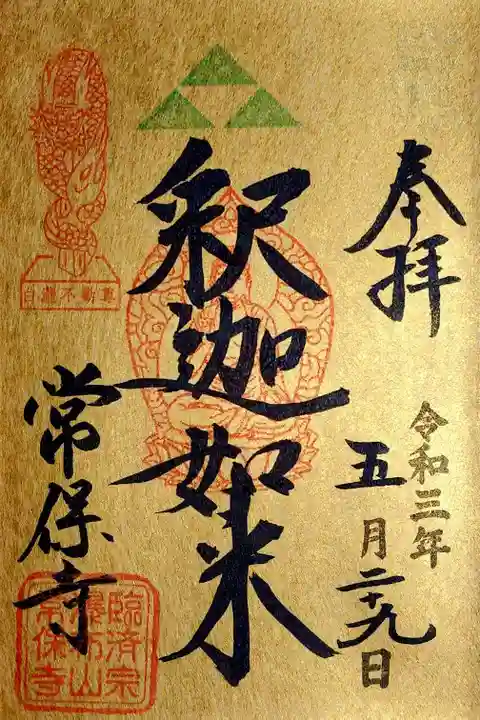 奉拝
令和三年
五月二十九日
釈迦如来
白瀧不動尊
常保寺
臨済宗
山
常保寺